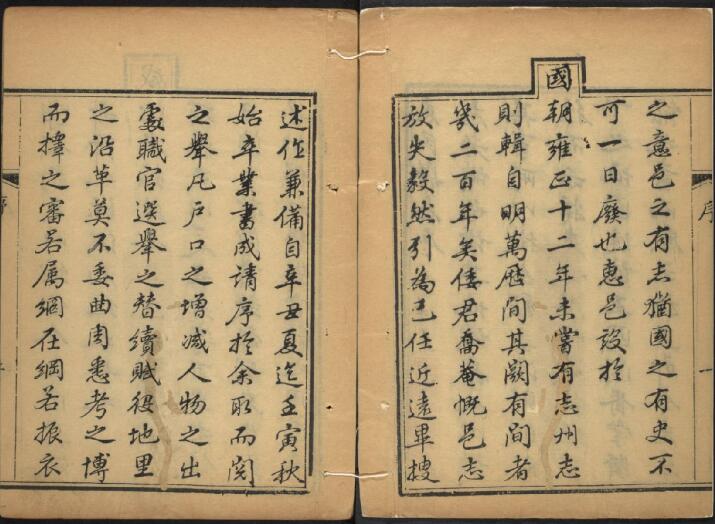 之意邑之有志猶國之有史不
可一日廢也惠邑設於
國朝雍正十二年未嘗有志州志
則輯自明萬厯間其闕有間者
幾二百年矣倭君喬菴慨邑志
放失毅然引為己任近遠畢搜
序
一
述作兼備自辛丑夏迄壬寅秋
始卒業書成請序於余取而閱
之舉凡戶口之增減人物之出
處職官選舉之替續賦役地里
之沿革莫不委曲周悉考之博
而擇之審若属網在綱若振衣
序